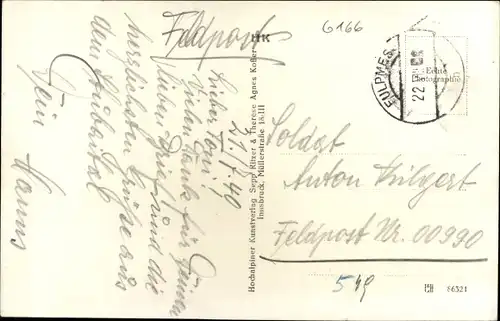 Feldpost
HK
6166
FULPMES
22
Echte
Photographie
21/7.40
Lieber Toni!
Vielen Dank für Deinen
lieben Brief und die
herzlichsten Grüße aus
dem Stubaital
Dein Hanns
Hochalpiner Kunstverlag Sepp Ritzer & Therese Agnes Kofler
Innsbruck, Müllerstraße 18-III
Soldat
Anton
Feldpost Nr. 00990
519
86321